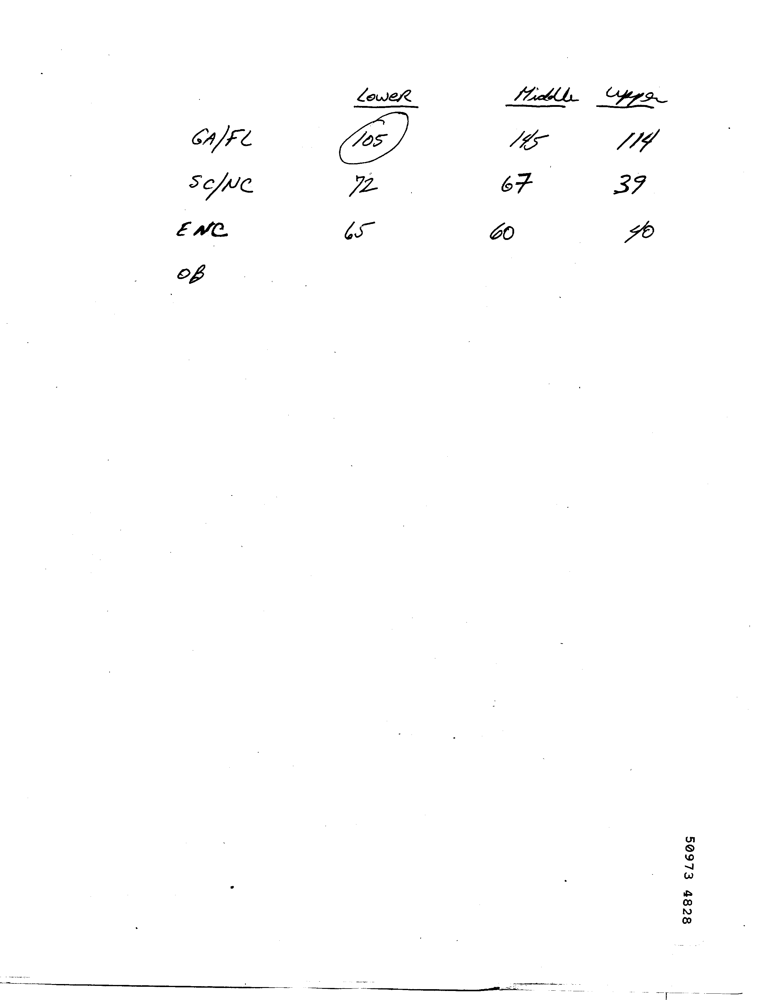 Lower Middle Upper
GA/FL 105 145 114
SC/NC 72 67 39
ENC 65 60 40
OB
50973 4828